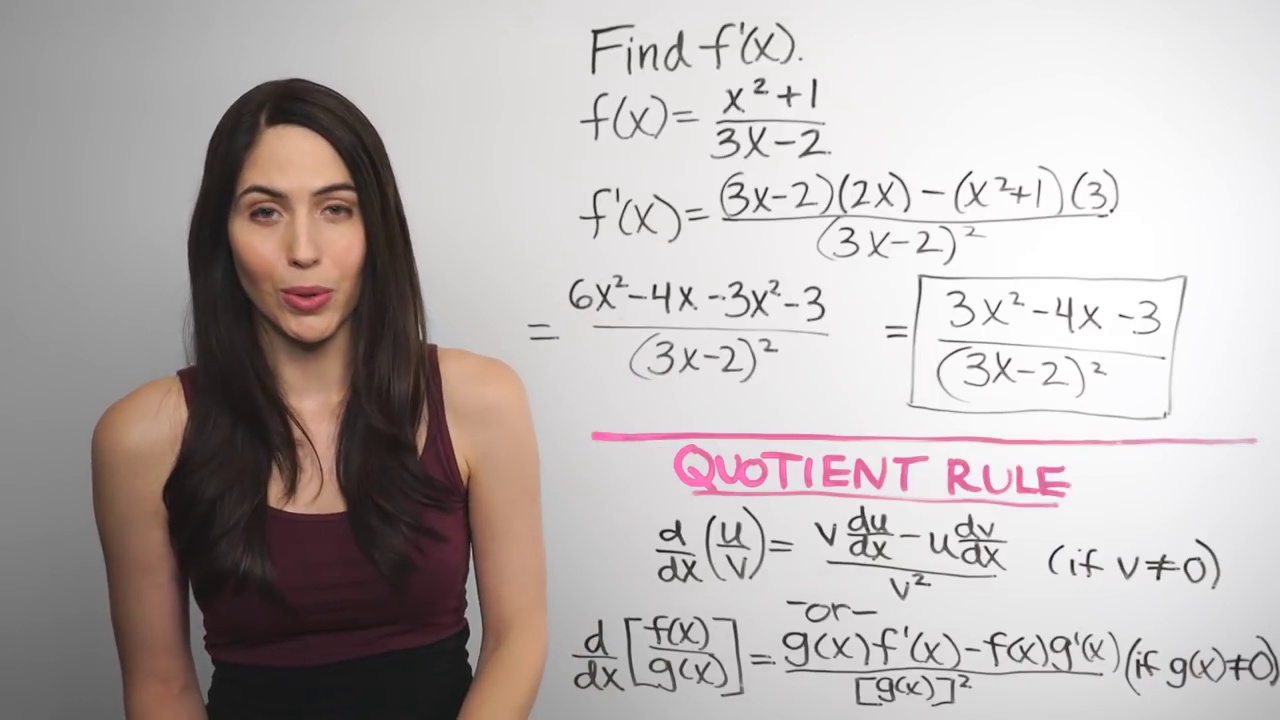 Find f'(x).
f(x)= x²+1 / 3x-2
f'(x)= (3x-2)(2x) - (x²+1)(3) / (3x-2)²
= 6x²-4x-3x²-3 / (3x-2)² = 3x²-4x-3 / (3x-2)²
QUOTIENT RULE
d/dx (u/v) = v du/dx - u dv/dx / v² (if v≠0)
-or-
d/dx [f(x)/g(x)] = g(x)f'(x)-f(x)g'(x) / [g(x)]² (if g(x)≠0)